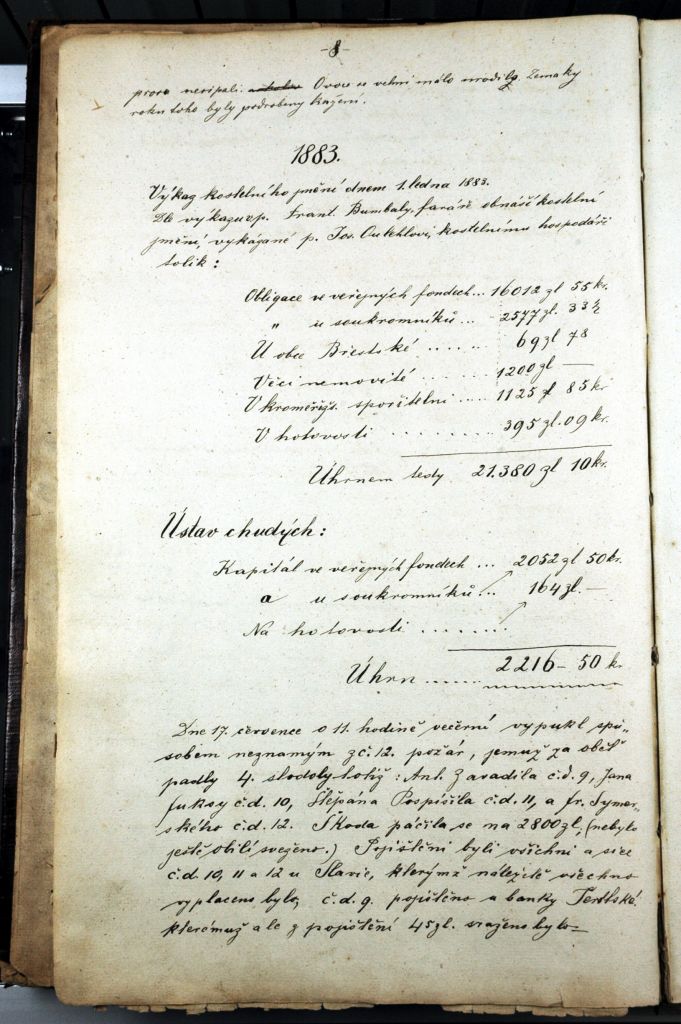 -8-
proso nesypali. Ovoce velmi málo urodilo. Zemáky
roku toho byly podrobeny kažení.
1883.
Výkaz kostelního jmění dnem 1. ledna 1883.
Dle výkazu p. Frant. Bumbaly, faráře obnáší kostelní
jmění, vykázané p. Jos. kostelnímu hospodáři
tolik:
Obligace ve veřejných fondech... 16012 zl 55 kr.
" u soukromníků... 2577 zl. 33 ½
U obce Břestské ..... 69 zl 78
Věci nemovité ..... 1200 zl —
V kroměřížs. spořitelni .... 1125 zl 85 kr
V hotovosti ......... 395 zl. 09 kr.
Úhrnem tedy 21.380 zl 10 kr.
Ústav chudých:
Kapitál ve veřejných fondech ... 2052 zl 50 kr.
a u soukromníků... 164 zl. —
Na hotovosti ........
Úhrn ...... 2216 - 50 kr
Dne 17. července o 11. hodině večerní vypukl způ-
sobem neznámým z č. 12. požár, jemuž za oběť
padly 4. stodoly totiž: Ant. Zavadila č.d. 9, Jana
Fuksy č.d. 10, Štěpána Pospíšila č.d. 11, a Fr. Symer-
ského č.d. 12. Škoda páčila se na 2800 zl. (nebylo
ještě obilí sveženo.) Pojištěni byli všichni a sice
č.d. 10, 11 a 12 u Slavie, kterýmž náležitě všechno
vyplaceno bylo, č.d. 9. pojištěno u banky
kterémuž ale z pojištění 45 zl. sraženo bylo.